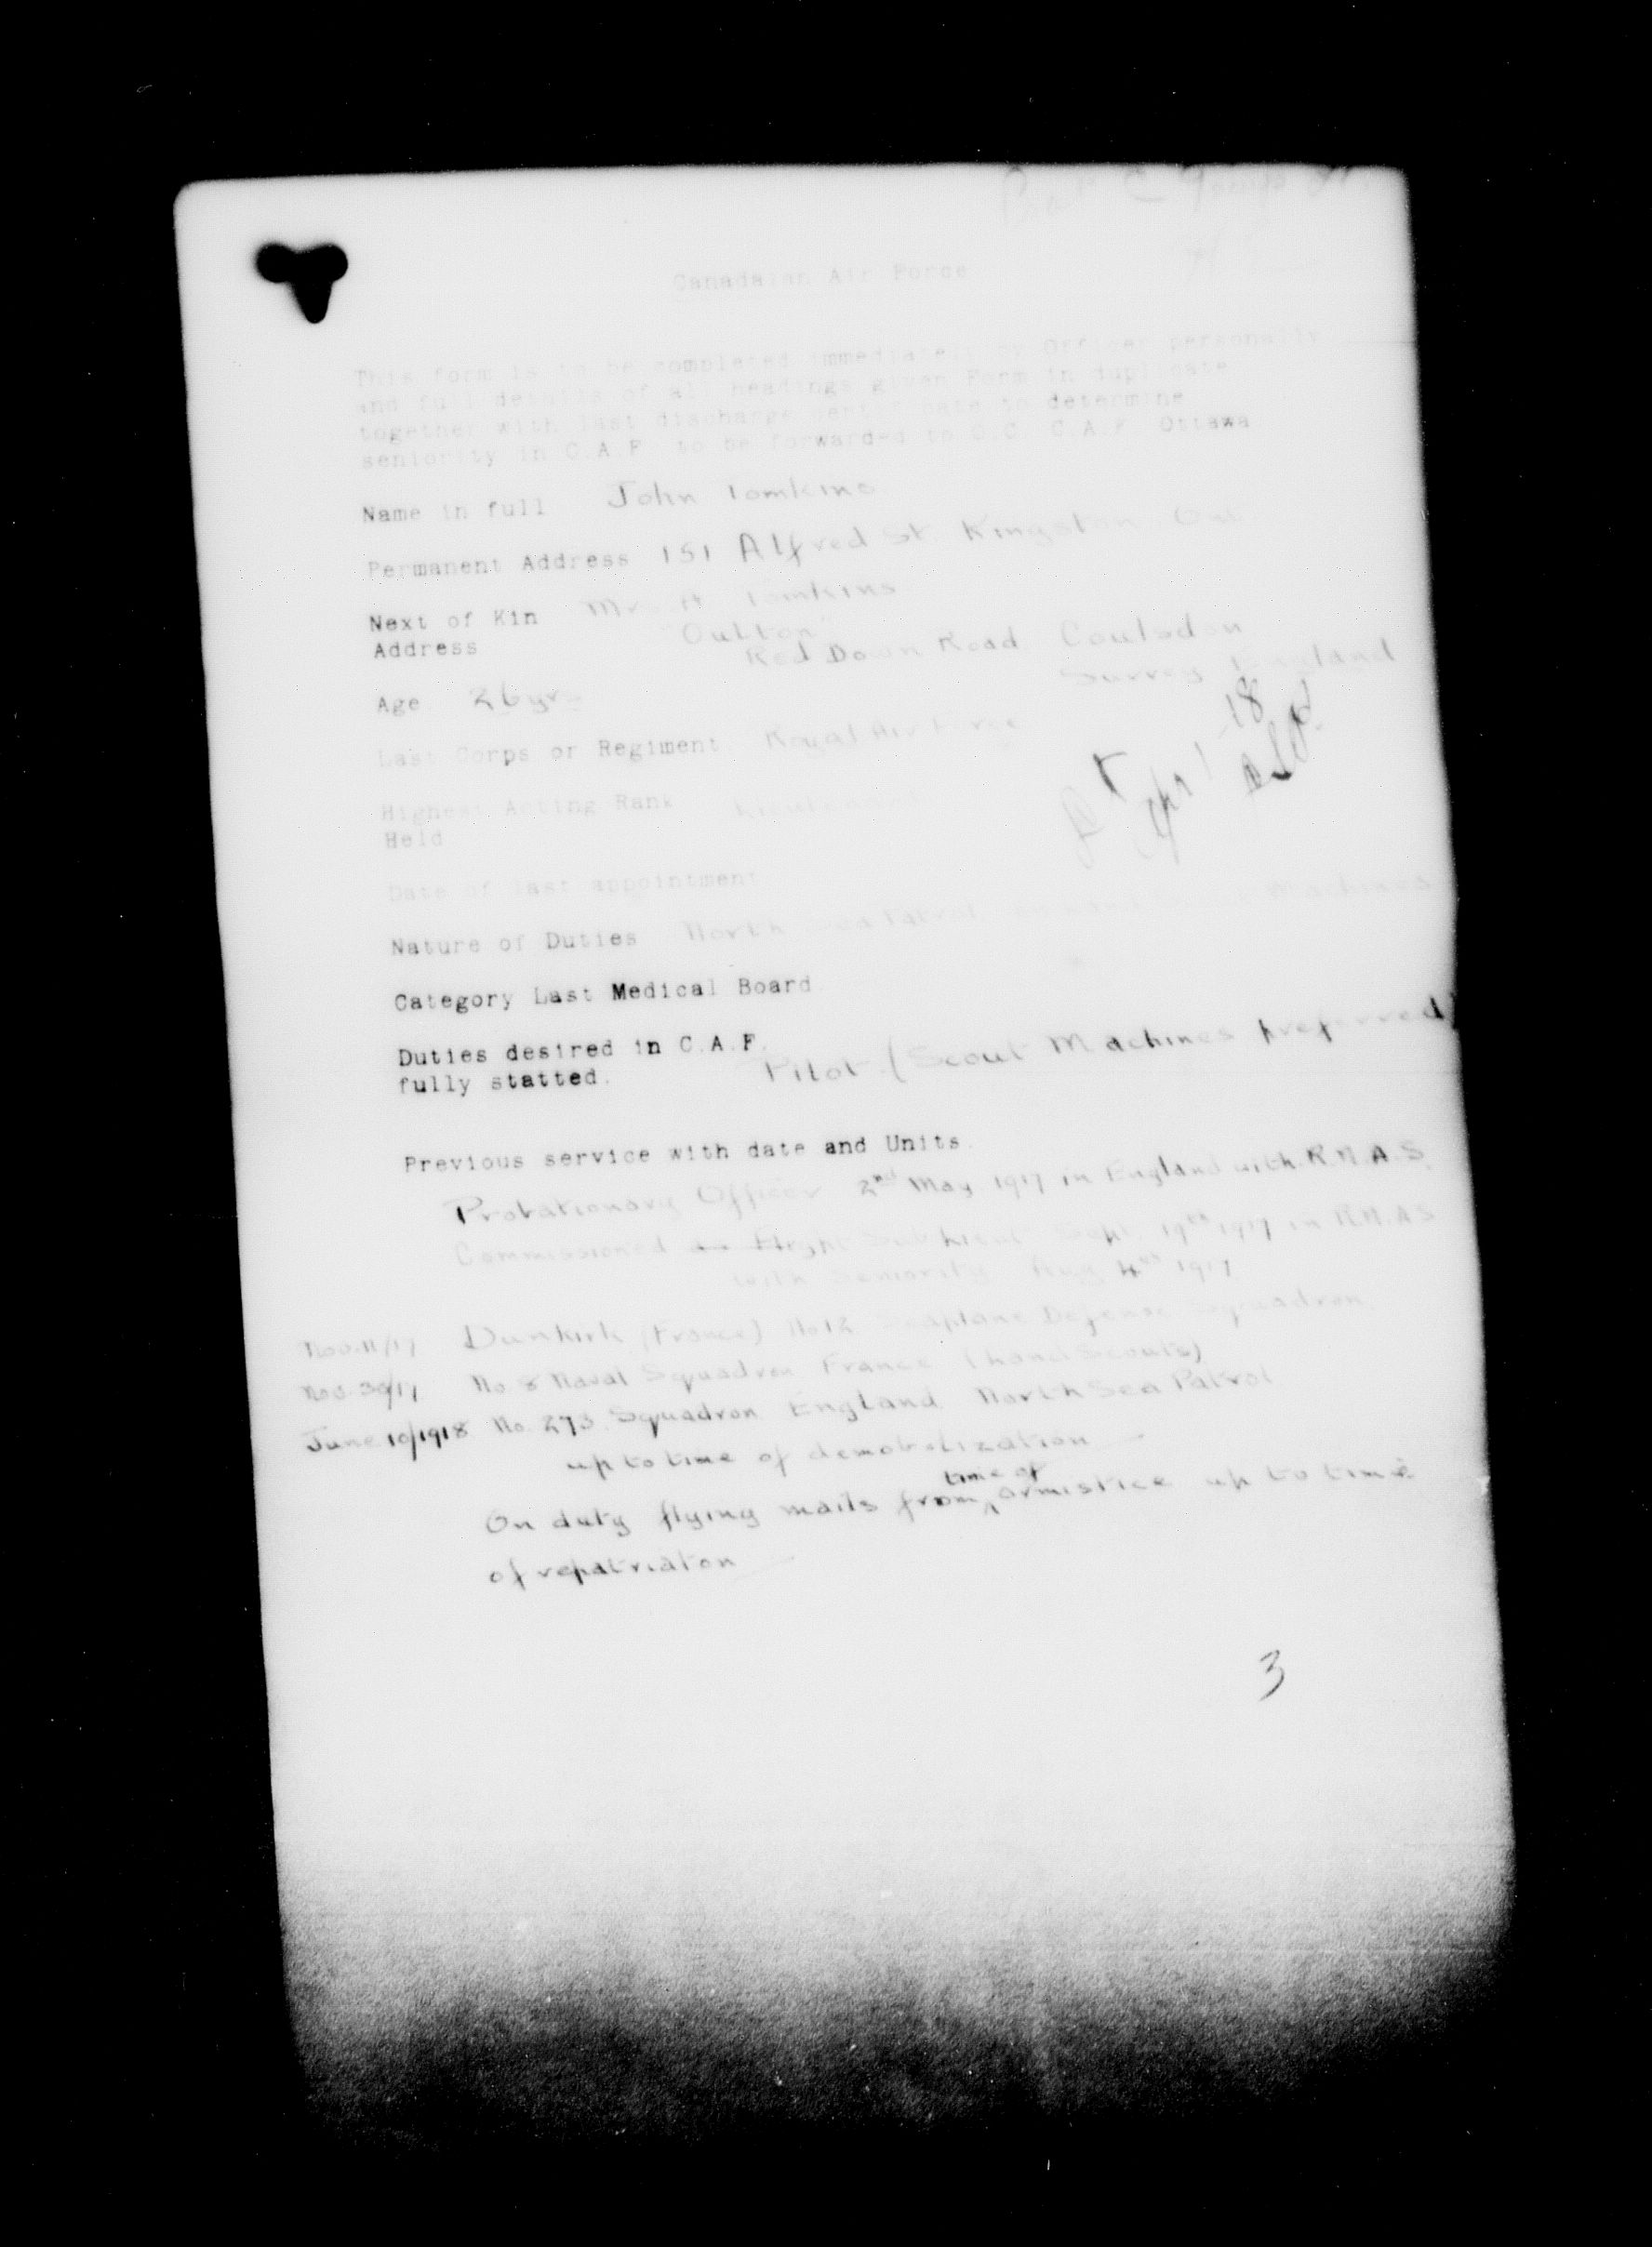 Canadaian Air Force
This form is to be completed immediately by Officer personally
and full details of all headings given Form in duplicate
together with last discharge certificate to determine
seniority in C.A.F. to be forwarded to O.C. C.A.F. Ottawa
Name in full John Tomkins
Permanent Address 151 Alfred St Kingston Ont
Next of Kin Mrs H Tomkins
Address "Oulton"
Red Down Road Coulsdon
Surrey England
Age 26 yrs
18
Last Corps or Regiment Royal Air Force
Highest Acting Rank Lieutenant
Held
Date of last appointment
Nature of Duties North Sea Patrol Machines
Category Last Medical Board
Duties desired in C.A.F.
fully statted. Pilot (Scout Machines preferred)
Previous service with date and Units.
Probationary Officer 2nd May 1917 in England with R.N.A.S.
Commissioned as Flight Sub Lieut Sept 19th 1917 in R.N.A.S
with seniority Aug 4th 1917
Nov. 11/17 Dunkirk (France) No 12 Seaplane Defense Squadron.
Nov. 30/17 No 8 Naval Squadron France (Land Scouts)
June 10/1918 No. 273. Squadron England North Sea Patrol
up to time of demobilization
time of
On duty flying mails from armistice up to time
of repatriaton
3